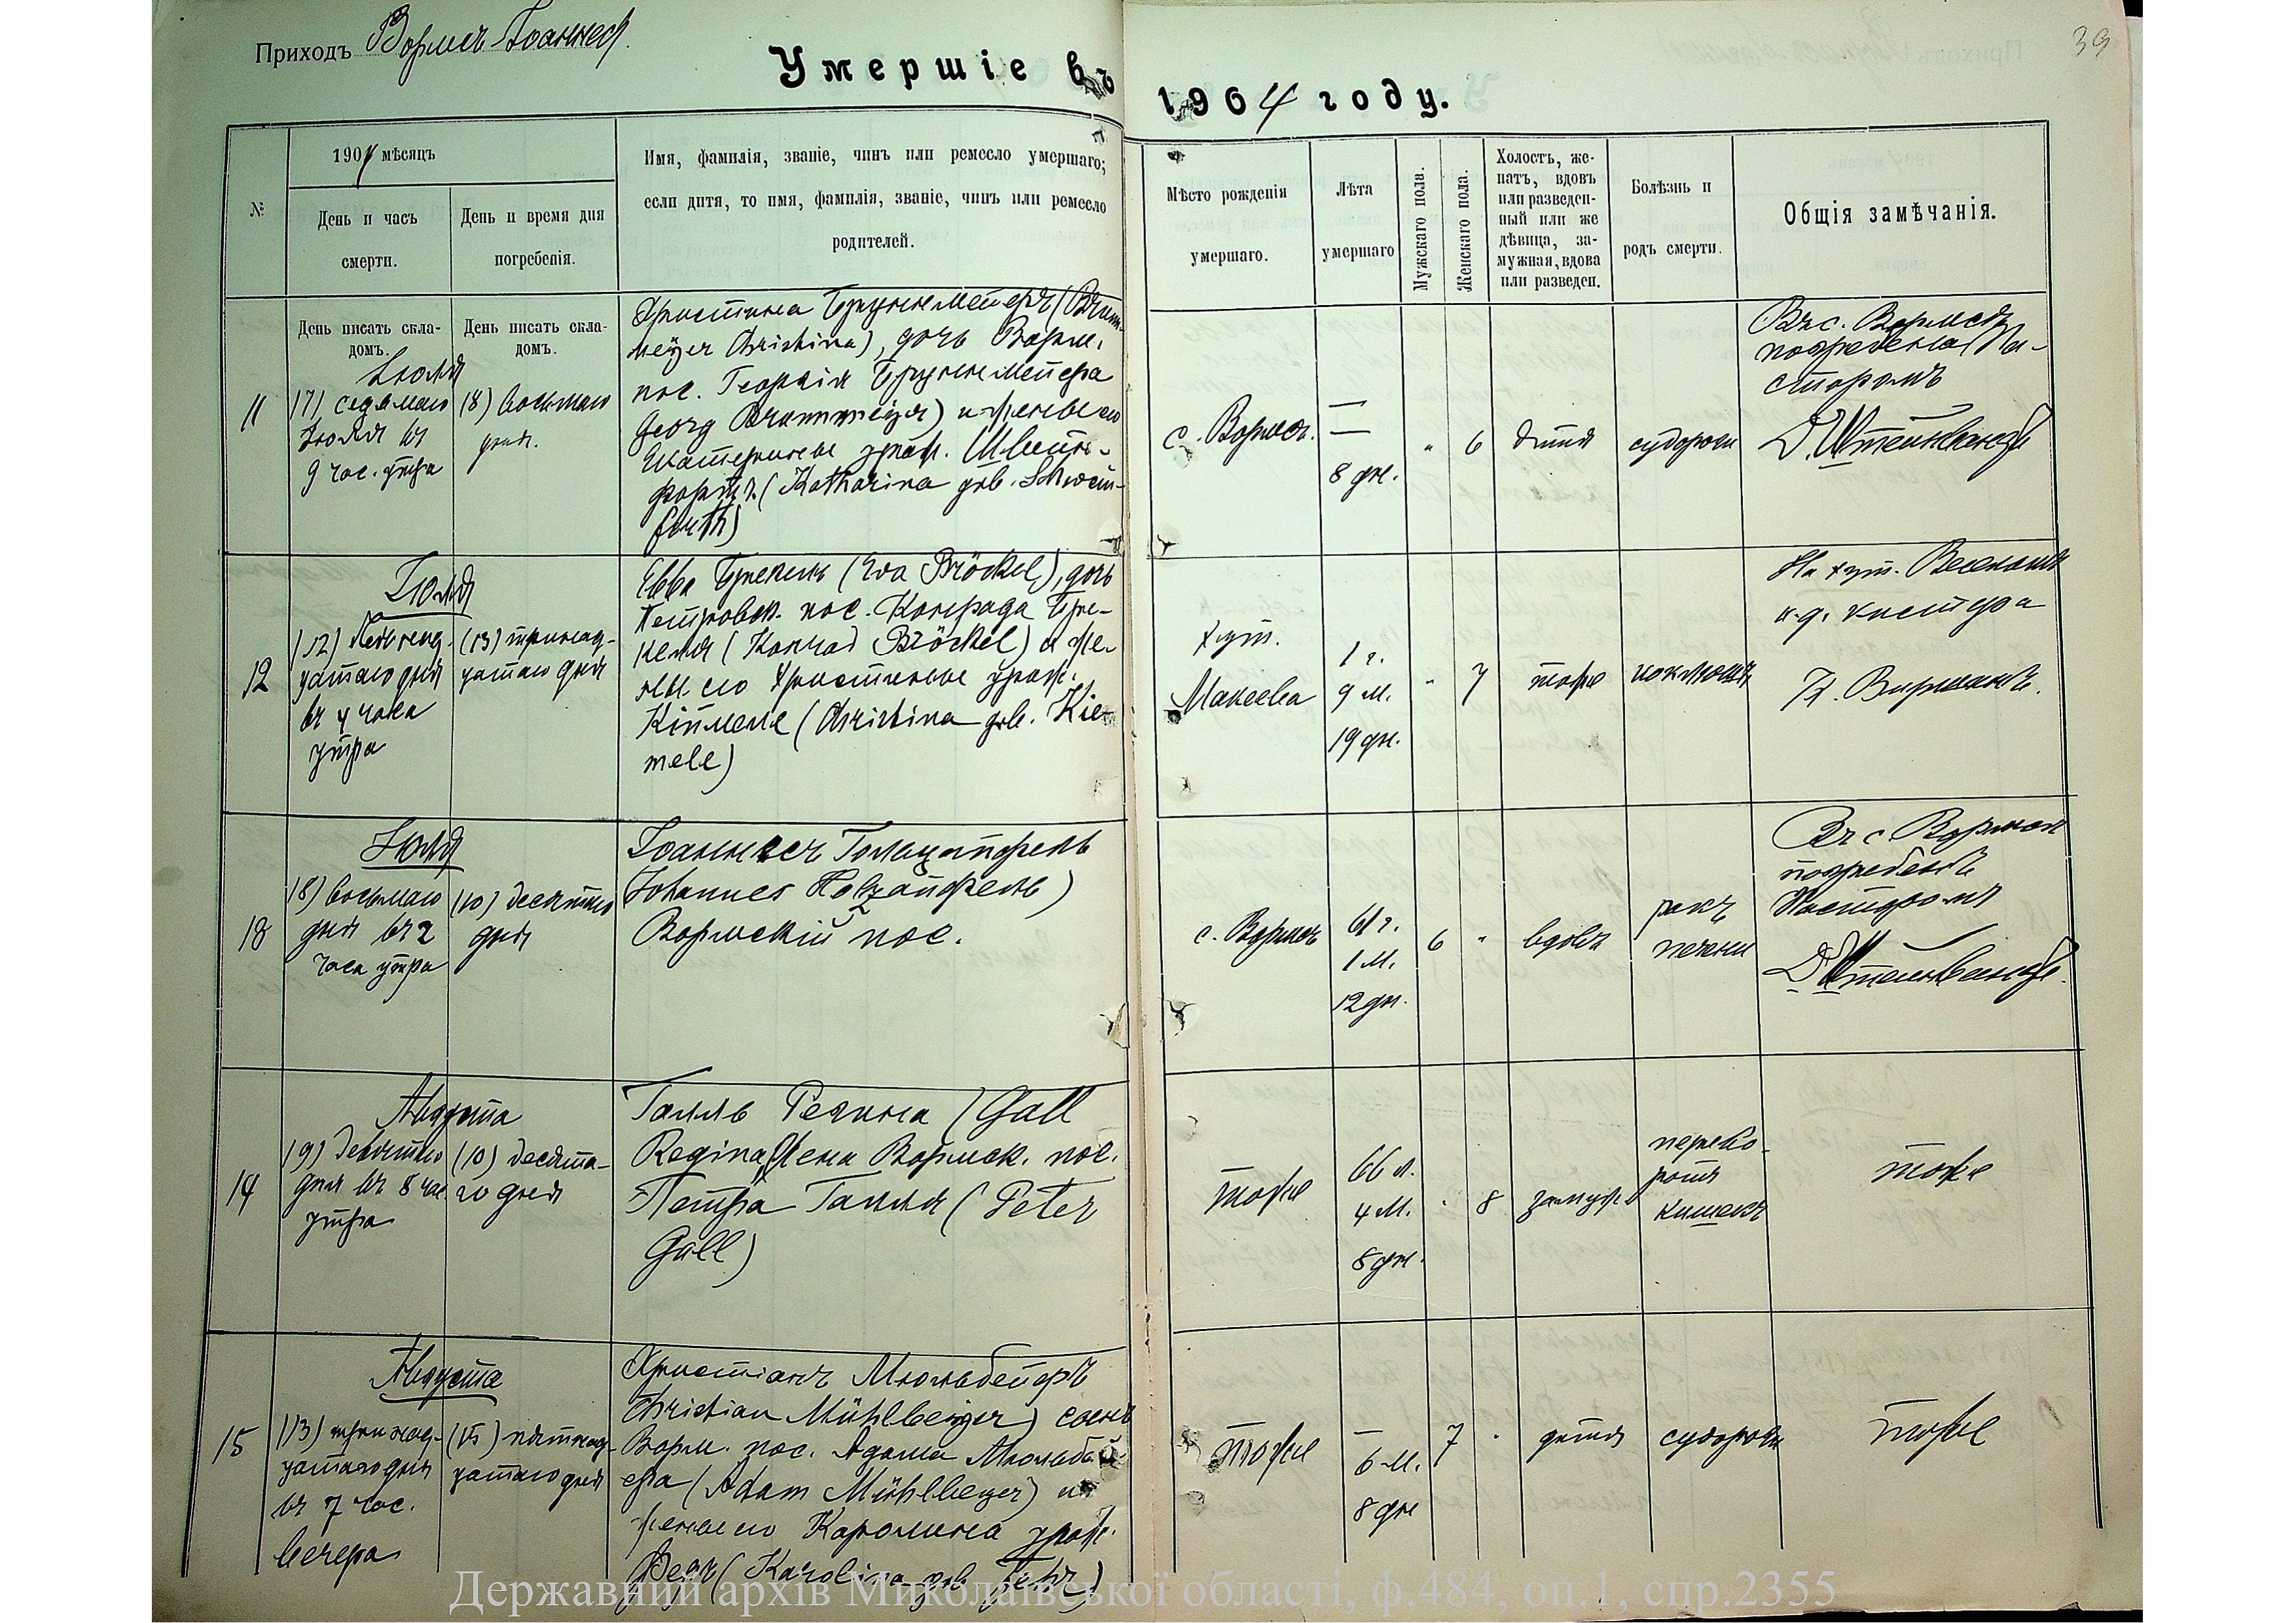 Приходъ Вормсъ Іоаннесъ
39
Умершіе въ 1904 году.
№
1904 мѣсяцъ
День и часъ
смерти.
День и время дня
погребенія.
Имя, фамилія, званіе, чинъ или ремесло умершаго;
если дитя, то имя, фамилія, званіе, чинъ или ремесло
родителей.
Мѣсто рожденія
умершаго.
Лѣта
умершаго
Мужскаго пола.
Женскаго пола.
Холостъ, же-
натъ, вдовъ
или разведен-
ный или же
дѣвица, за-
мужная, вдова
или разведен.
Болѣзнь и
родъ смерти.
Общія замѣчанія.
День писать скла-
домъ.
День писать скла-
домъ.
11
Іюля
(7) седьмаго
Іюля въ
9 час. утра
(8) восьмаго
дня.
Христина Бруннмейеръ (Brum-
meyer Christina), дочь Ворм.
пос. Георгія Бруннмейера
Georg Brummeyer) и жены его
Екатерины урож. Швейн-
фортъ (Katharina geb. Schwein-
furth)
с. Вормсъ.
—
—
8 дн.
"
6
дитя
судороги
Въ с. Вормсъ
погребена Па-
сторомъ
Д. Штейнвандъ
12
Іюля
(12) двенад-
цатаго дня
въ 4 часа
утра
(13) тринад-
цатаго дня
Евва Брекель (Eva Bröckel), дочь
Петровск. пос. Конрада Бре-
келя (Konrad Bröckel) и же-
ны его Христины урож.
Кіммеле (Christina geb. Kie-
mele)
хут.
Макеевка
1 г.
9 м.
19 дн.
"
7
тоже
коклюшъ
На хут.
и. д. кистера
13
Іюля
(8) восьмаго
дня въ 2
часа утра
(10) десятаго
дня
Іоаннесъ Голцапфель
Johannes Holzапфель)
Вормскій пос.
с. Вормсъ
61 г.
1 м.
12 дн.
6
"
вдовъ
ракъ
печени
Въ с Вормсъ
погребенъ
Пасторомъ
Д. Штейнвандъ.
14
Августа
(9) девятаго
дня въ 8 час
утра
(10) десята-
го дня
Галль Регина (Gall
Regina) жена Вормск. пос.
Петра Галля (Peter
Gall)
тоже
66 л.
4 м.
8 дн.
"
8
замуж
перево-
ротъ
кишекъ
тоже
15
Августа
(13) тринад-
цатаго дня
въ 7 час.
вечера
(15) пятнад-
цатаго дня
Христіанъ Мюльбейеръ
Christian Mühlbeyer) сынъ
Ворм. пос. Адама Мюльбей-
ера (Adam Mühlbeyer) и
жены его Каролина урож.
Феръ (Karolina geb Fehr)
тоже
—
6 м.
8 дн
7
"
дитя
судороги
тоже
Державний архів Миколаївської області, ф.484, оп.1, спр.2355